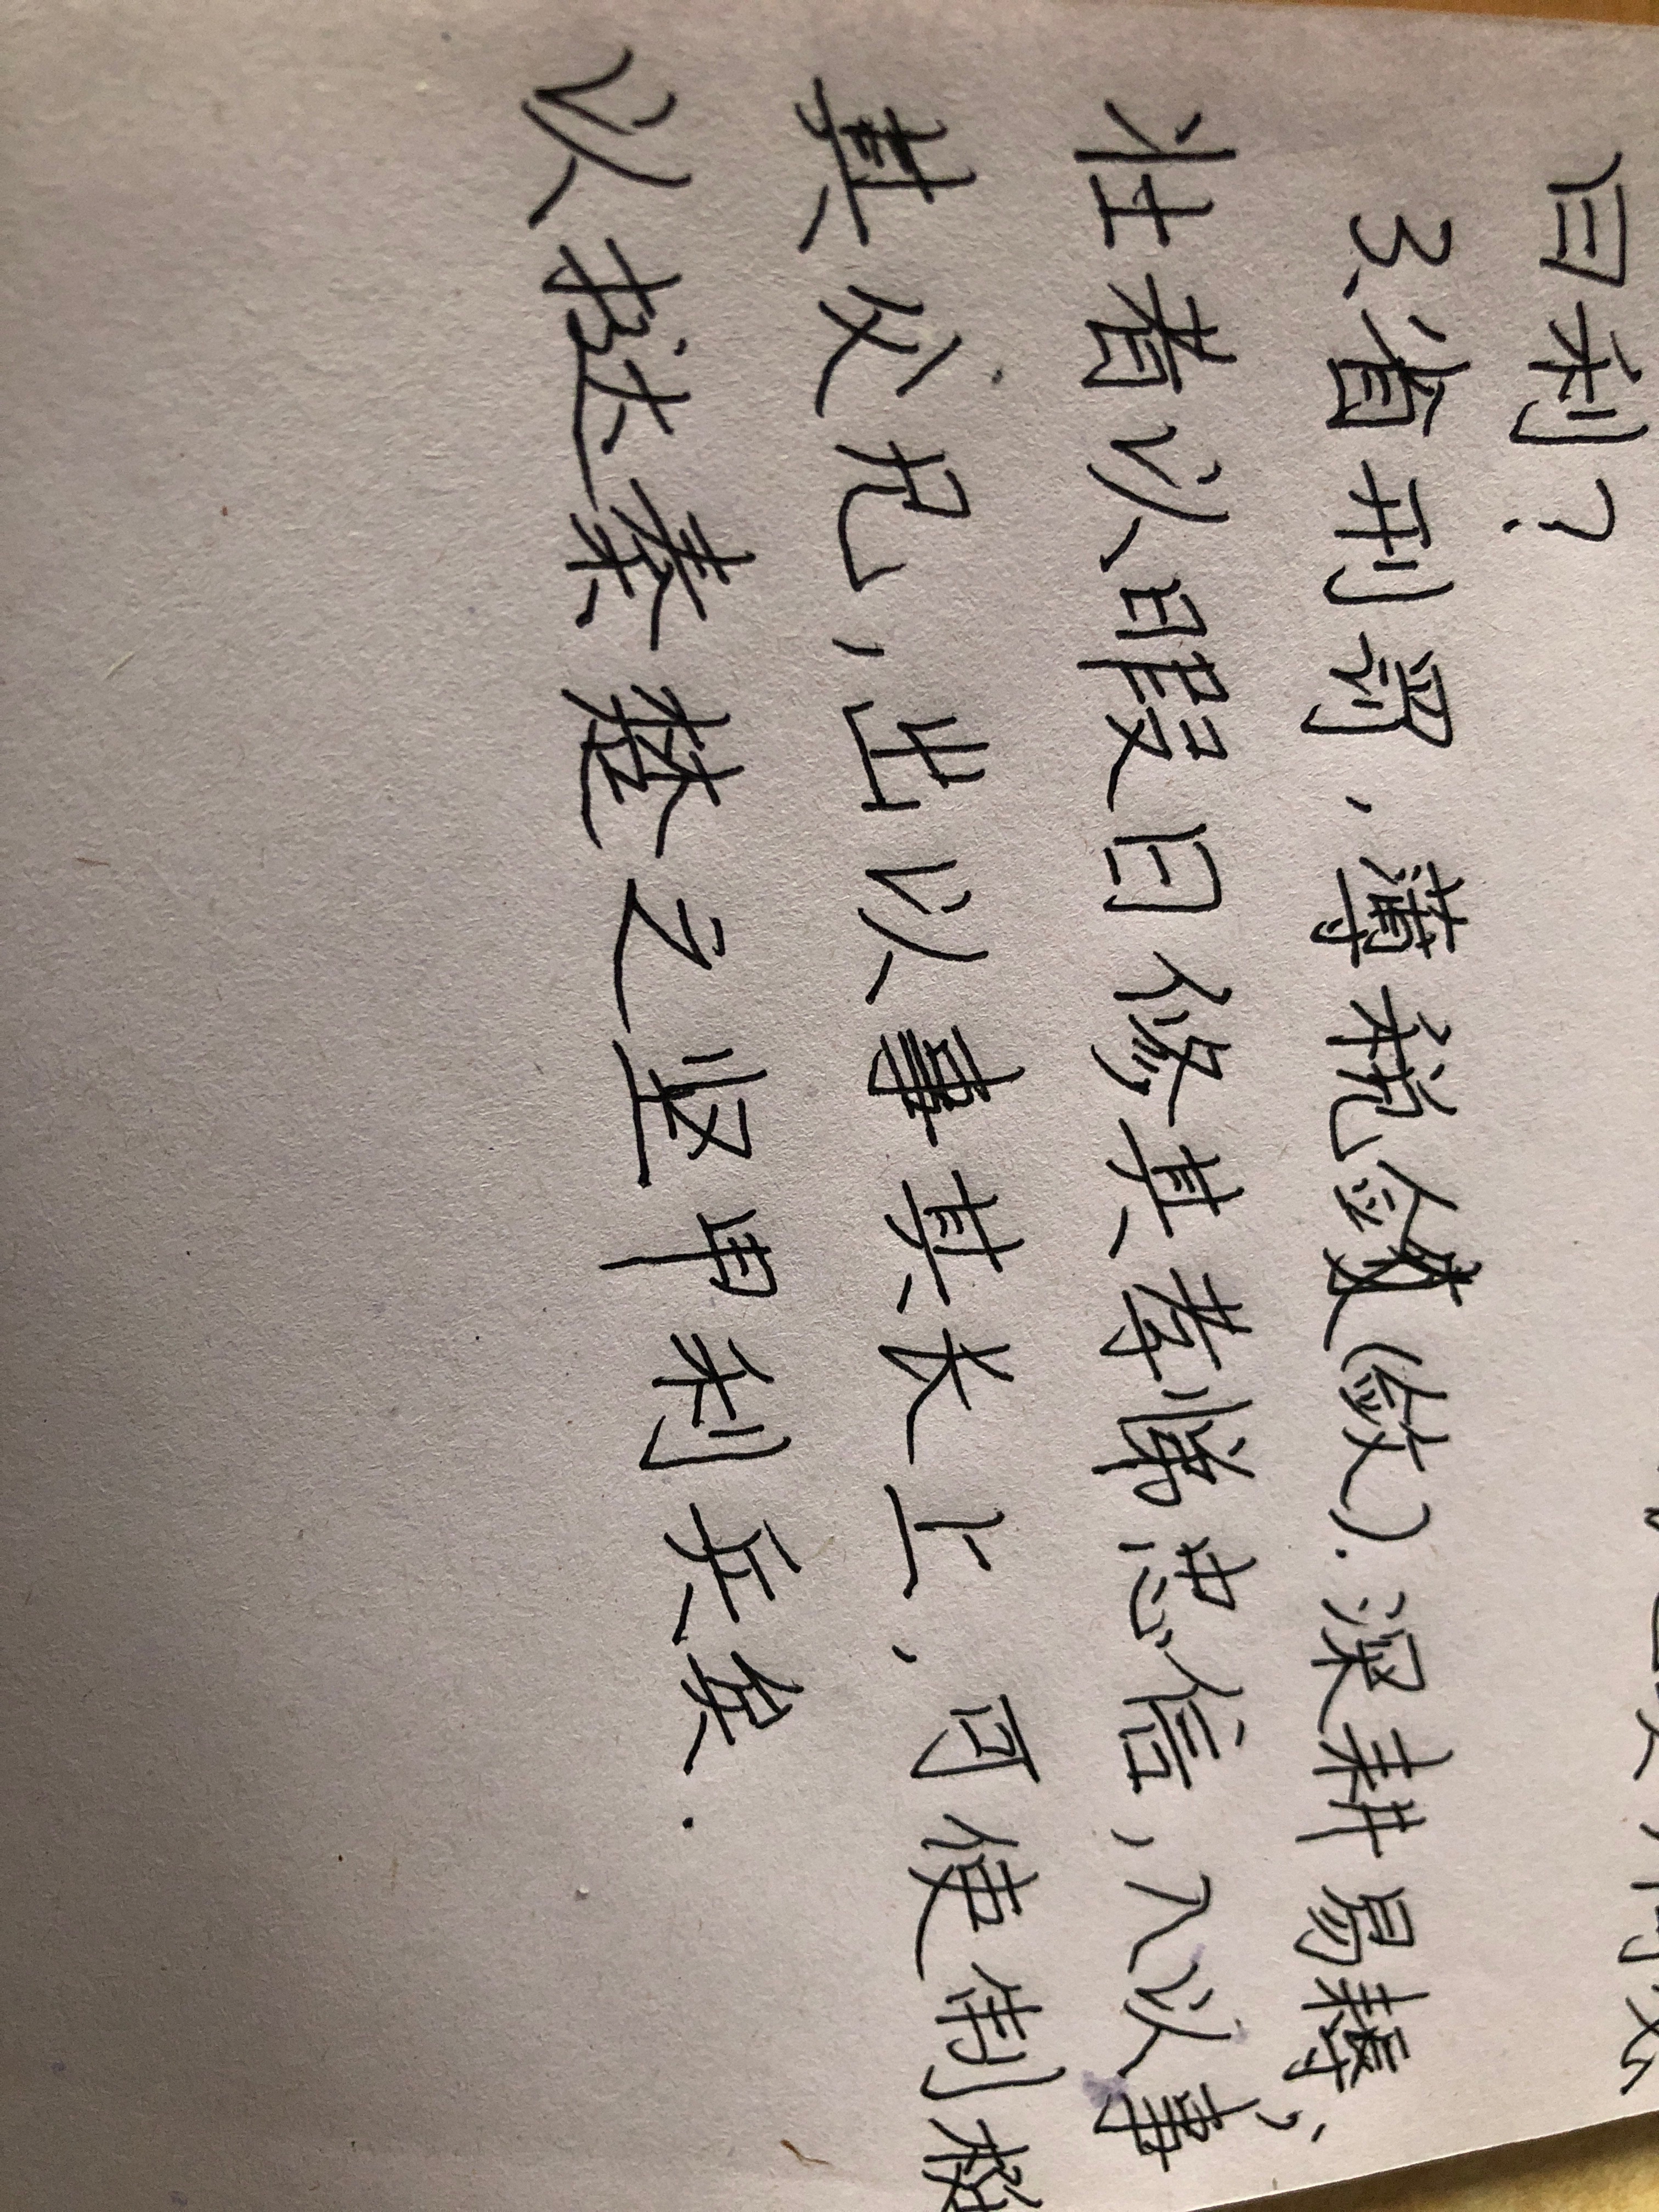 曰利？
3、省刑罚，薄税敛(敛).深耕易耨，
壮者以暇日修其孝悌忠信，入以事
其父兄，出以事其长上，可使制梃
以挞秦楚之坚甲利兵矣.